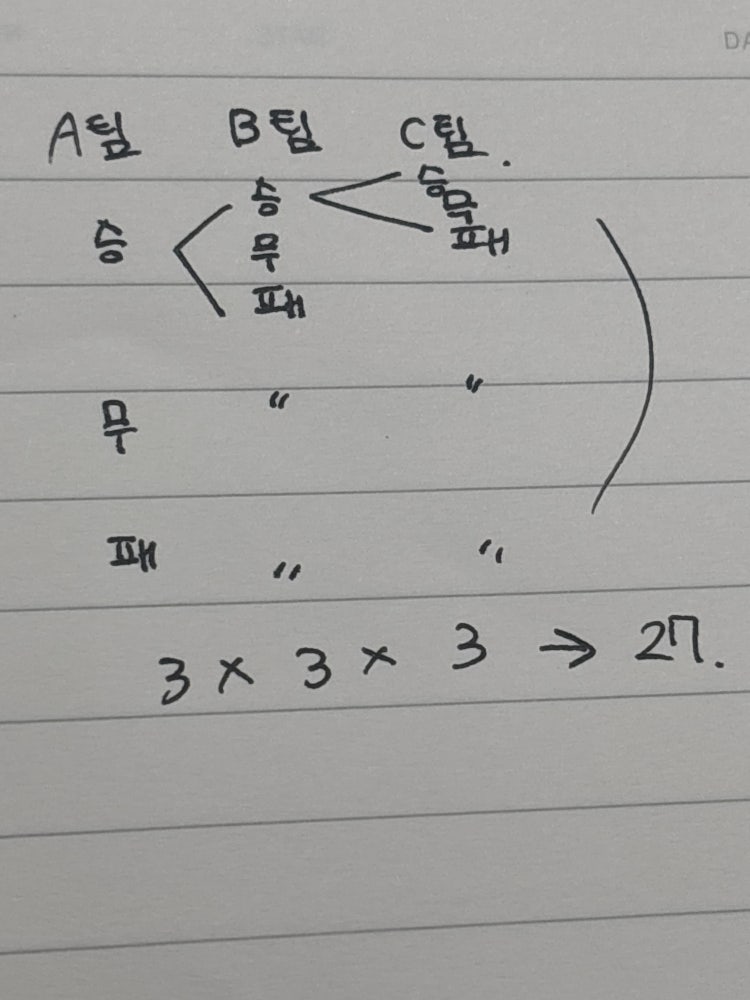 DA
A팀 B팀 C팀.
승 승 승
무 무
패 패
무 〃 〃
패 〃 〃
3 × 3 × 3 → 27.